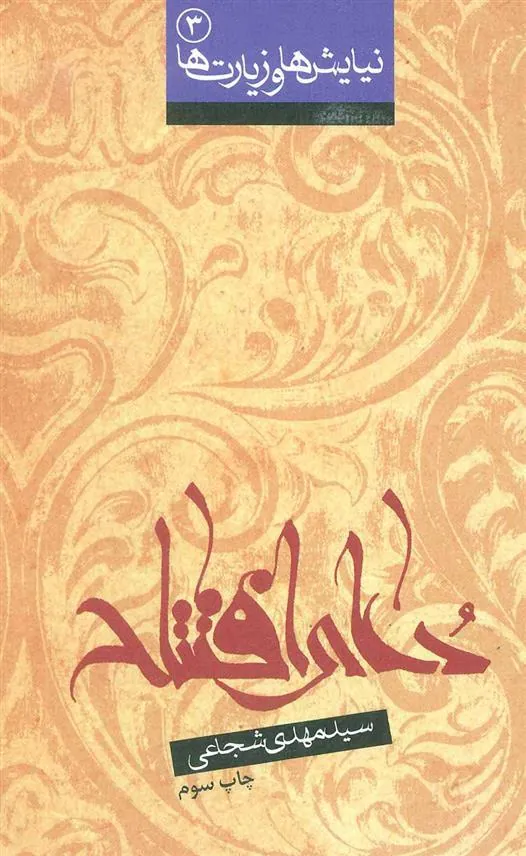 ۳
نیایش‌ها و زیارت‌ها
دعای افتتاح
سیدمهدی شجاعی
چاپ سوم